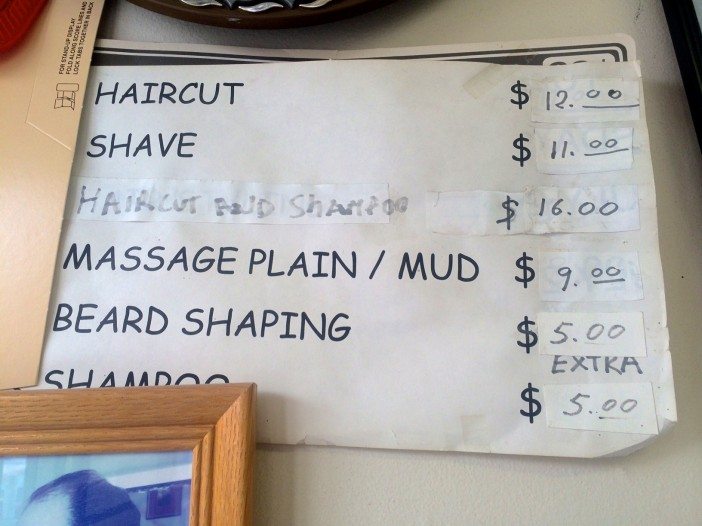 FOR STAND-UP DISPLAY
FOLD ALONG SCORE LINES AND
LOCK TABS TOGETHER IN BACK
HAIRCUT $ 12.00
SHAVE $ 11.00
HAIRCUT AND SHAMPOO $ 16.00
MASSAGE PLAIN / MUD $ 9.00
BEARD SHAPING $ 5.00
EXTRA
SHAMPOO $ 5.00